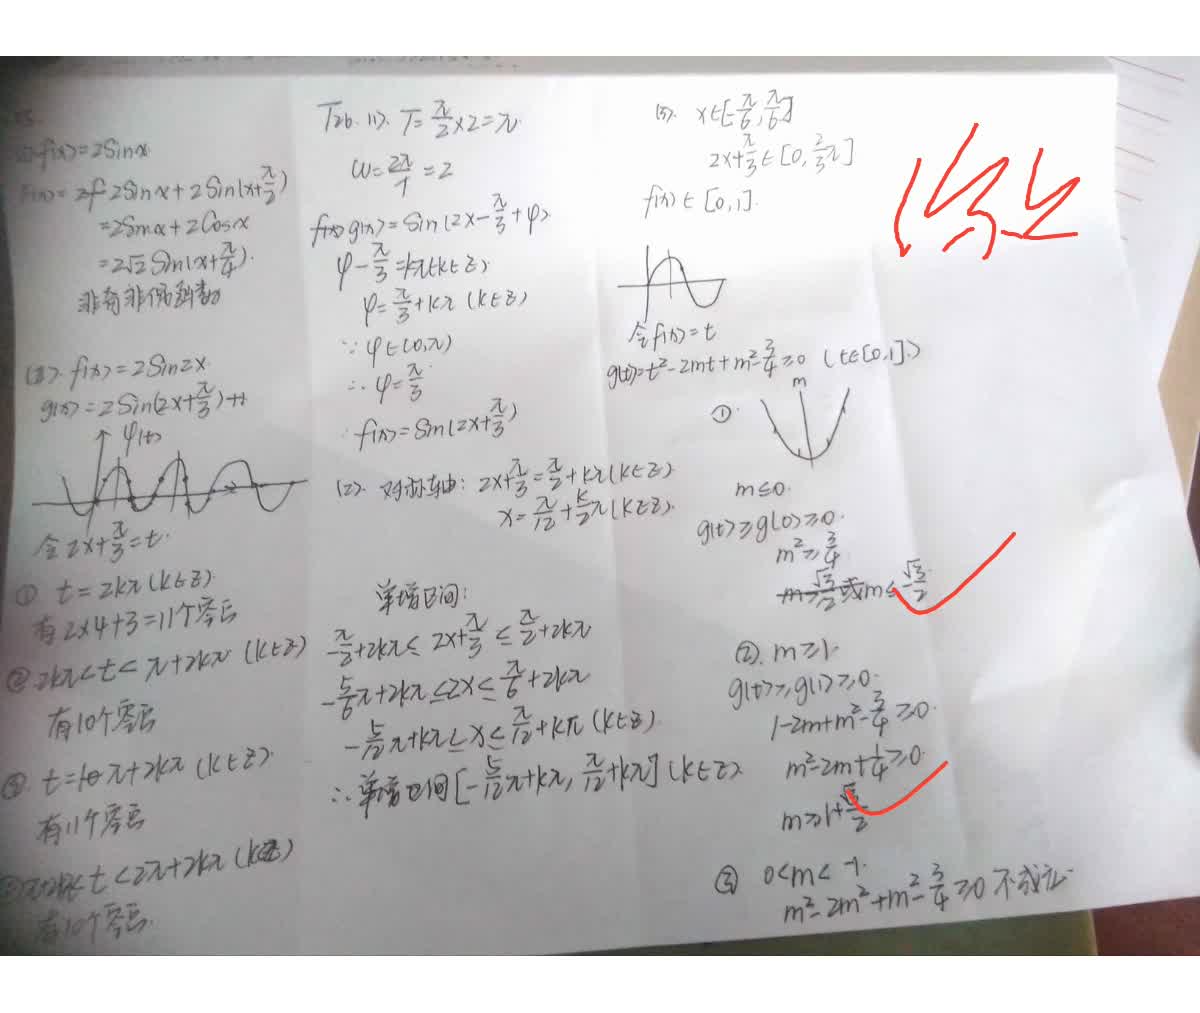 f(x)=2Sinx
F(x)=2Sinx+2Sin(x+π/2)
=2Sinx+2Cosx
=2√2Sin(x+π/4).
非奇非偶函数
(2). f(x)=2Sin2x
g(x)=2Sin(2x+π/3)+1
φ(t)
令2x+π/3=t.
① t=2kπ(k∈Z)
有2×4+3=11个零点
② 2kπ<t<π+2kπ (k∈Z)
有10个零点
③ t=π+2kπ(k∈Z)
有11个零点
π+2kπ<t<2π+2kπ(k∈Z)
有10个零点.
T26. (1). T=π/2×2=π.
ω=2π/T=2
g(x)=Sin(2x-π/3+φ)
φ-π/3=kπ(k∈Z)
φ=π/3+kπ(k∈Z)
∵φ∈(0,π)
∴φ=π/3
f(x)=Sin(2x+π/3)
(2). 对称轴: 2x+π/3=π/2+kπ(k∈Z)
x=π/12+k/2π(k∈Z).
单增区间:
-π/2+2kπ≤2x+π/3≤π/2+2kπ
-5/6π+2kπ≤2x≤π/6+2kπ
-5/12π+kπ≤x≤π/12+kπ(k∈Z)
∴单增区间[-5/12π+kπ,π/12+kπ](k∈Z)
(3). x∈[-π/6,π/6]
2x+π/3∈[0,2/3π]
f(x)∈[0,1].
令f(x)=t
g(t)=t²-2mt+m²-3/4≥0 (t∈[0,1].)
①.
m
m≤0.
g(t)≥g(0)≥0.
m²≥3/4
m≥√3/2或m≤-√3/2
②. m≥1.
g(t)≥g(1)≥0.
1-2m+m²-3/4≥0.
m²-2m+1/4≥0.
m≥1+√3/2
③ 0<m<1.
m²-2m²+m²-3/4≥0不成立.